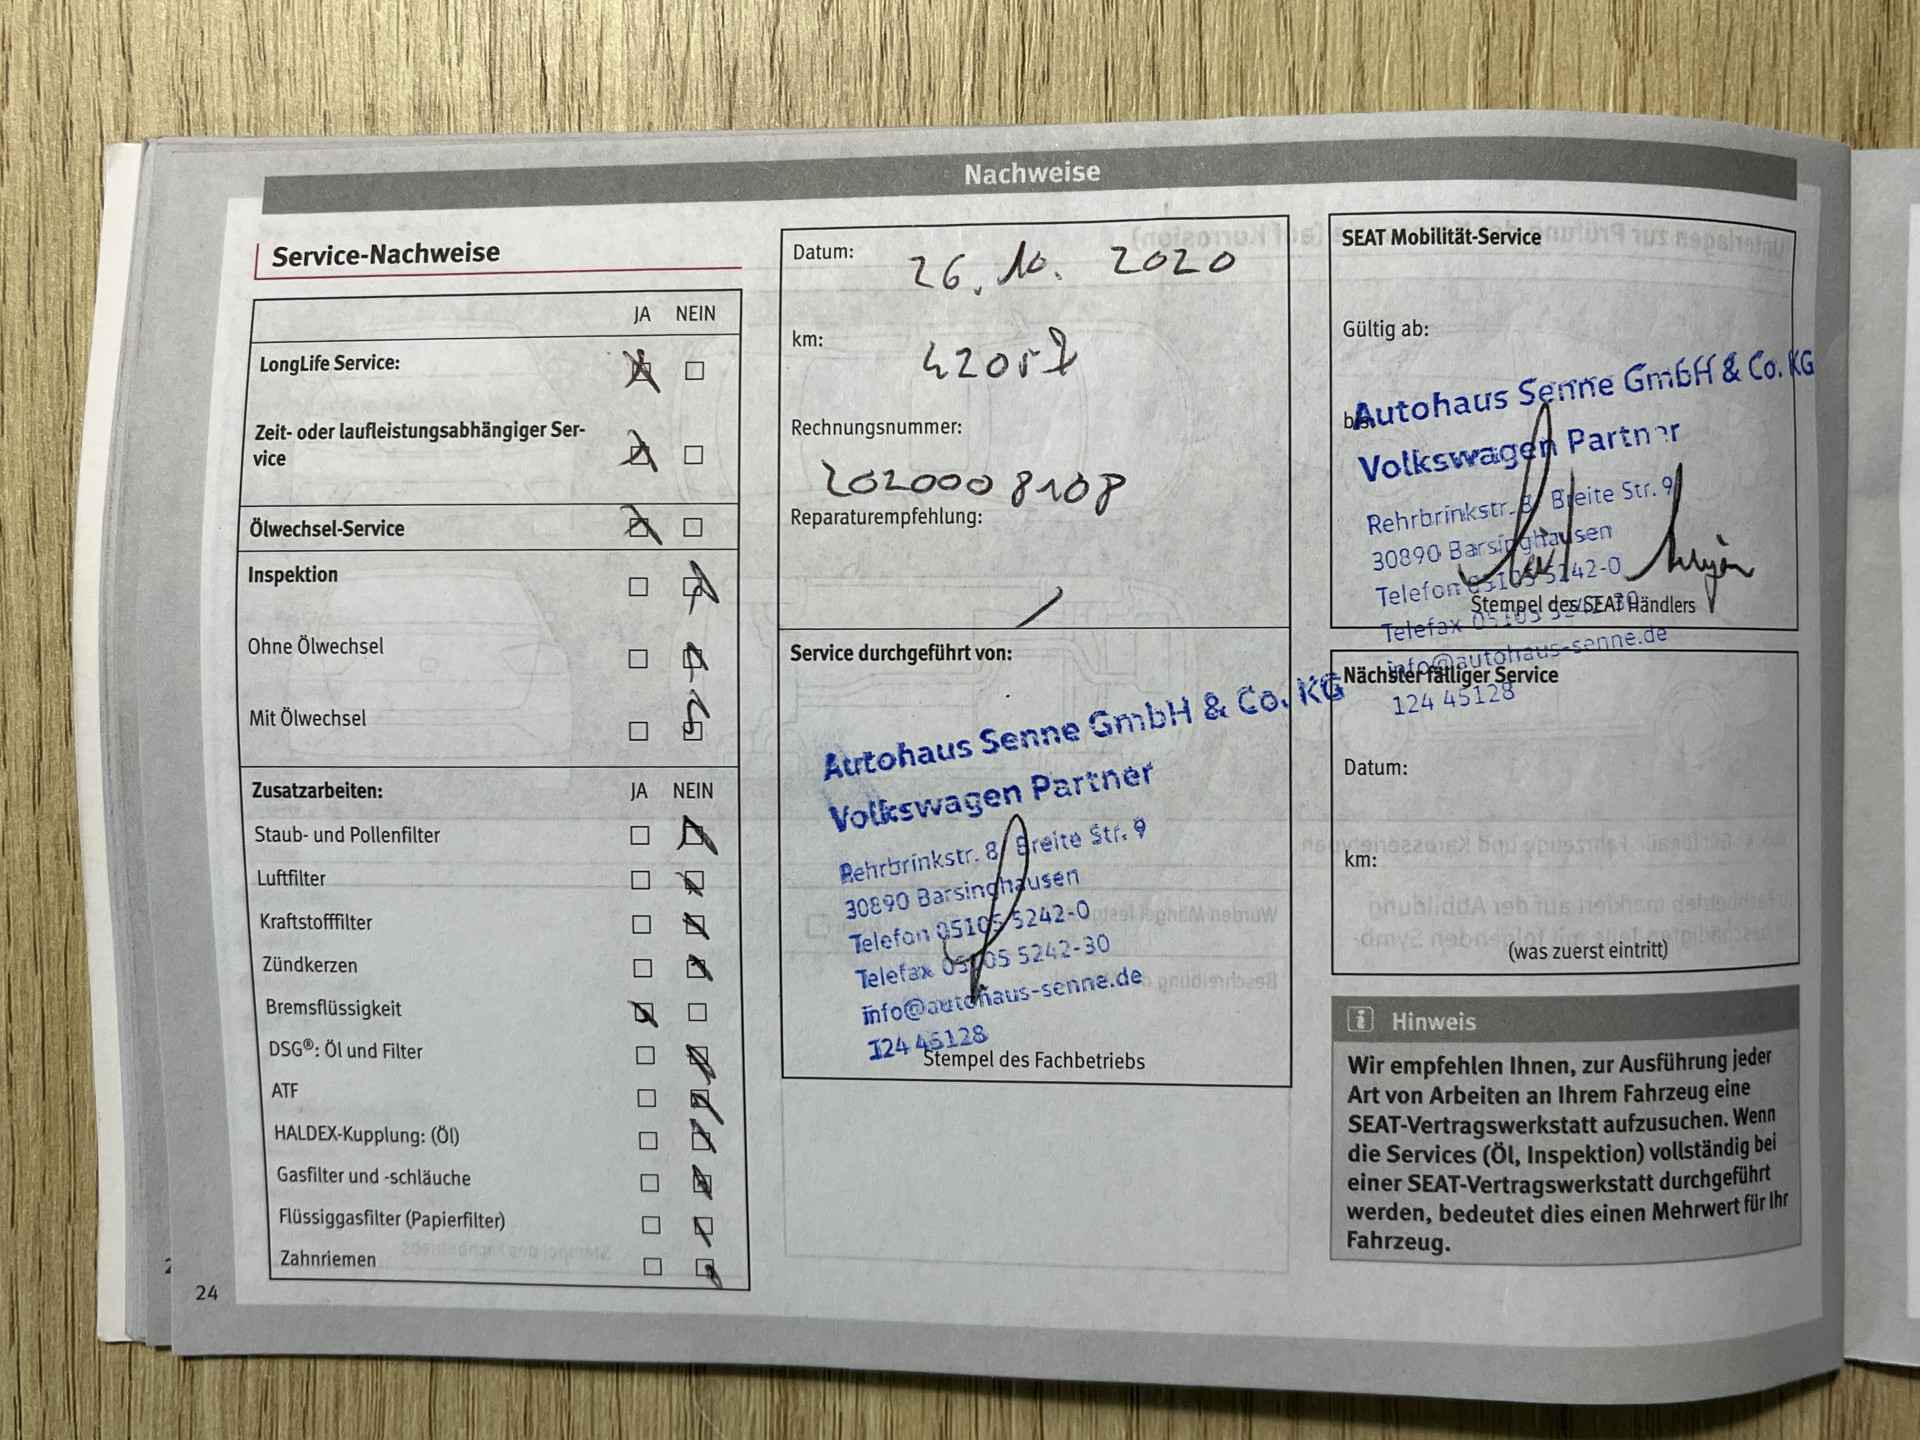 Nachweise
Service-Nachweise
JA NEIN
LongLife Service:
Zeit- oder laufleistungsabhängiger Ser-
vice
Ölwechsel-Service
Inspektion
Ohne Ölwechsel
Mit Ölwechsel
Zusatzarbeiten: JA NEIN
Staub- und Pollenfilter
Luftfilter
Kraftstofffilter
Zündkerzen
Bremsflüssigkeit
DSG®: Öl und Filter
ATF
HALDEX-Kupplung: (Öl)
Gasfilter und -schläuche
Flüssiggasfilter (Papierfilter)
Zahnriemen
24
Datum: 26.10. 2020
km:
42057
Rechnungsnummer:
2020008108
Reparaturempfehlung:
Service durchgeführt von:
Autohaus Senne GmbH & Co. KG
Volkswagen Partner
Rehrbrinkstr. 8, Breite Str. 9
30890 Barsinghausen
Telefon 05105 5242-0
Telefax 05105 5242-30
info@autohaus-senne.de
124 45128
Stempel des Fachbetriebs
SEAT Mobilität-Service
Gültig ab:
bis:
Autohaus Senne GmbH & Co. KG
Volkswagen Partner
Rehrbrinkstr. 8, Breite Str. 9
30890 Barsinghausen
Telefon 05105 5242-0
Stempel des SEAT Händlers
Telefax 05105 5242-30
info@autohaus-senne.de
Nächster fälliger Service
124 45128
Datum:
km:
(was zuerst eintritt)
i Hinweis
Wir empfehlen Ihnen, zur Ausführung jeder
Art von Arbeiten an Ihrem Fahrzeug eine
SEAT-Vertragswerkstatt aufzusuchen. Wenn
die Services (Öl, Inspektion) vollständig bei
einer SEAT-Vertragswerkstatt durchgeführt
werden, bedeutet dies einen Mehrwert für Ihr
Fahrzeug.